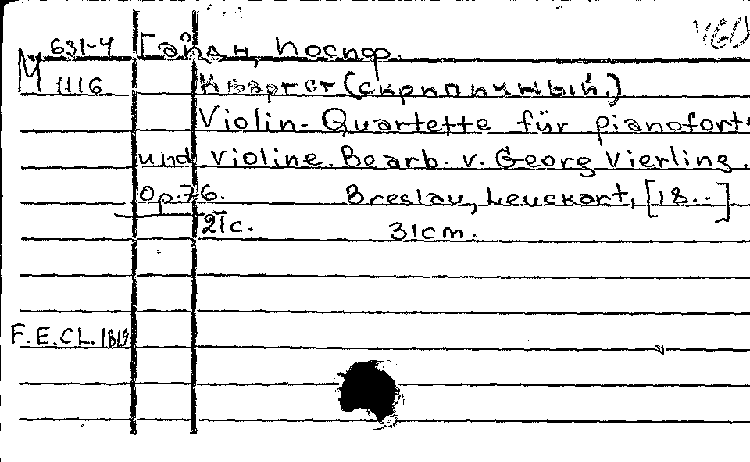 460
631-4 Гайдн, Йосиф.
М 1116 Квартет (скрипичный.)
Violin-Quartette für pianoforte
und violine. Bearb. v. Georg Vierling.
Op.76. Breslau, Leuckart, [18..]
21с. 31cm.
F.E.CL.